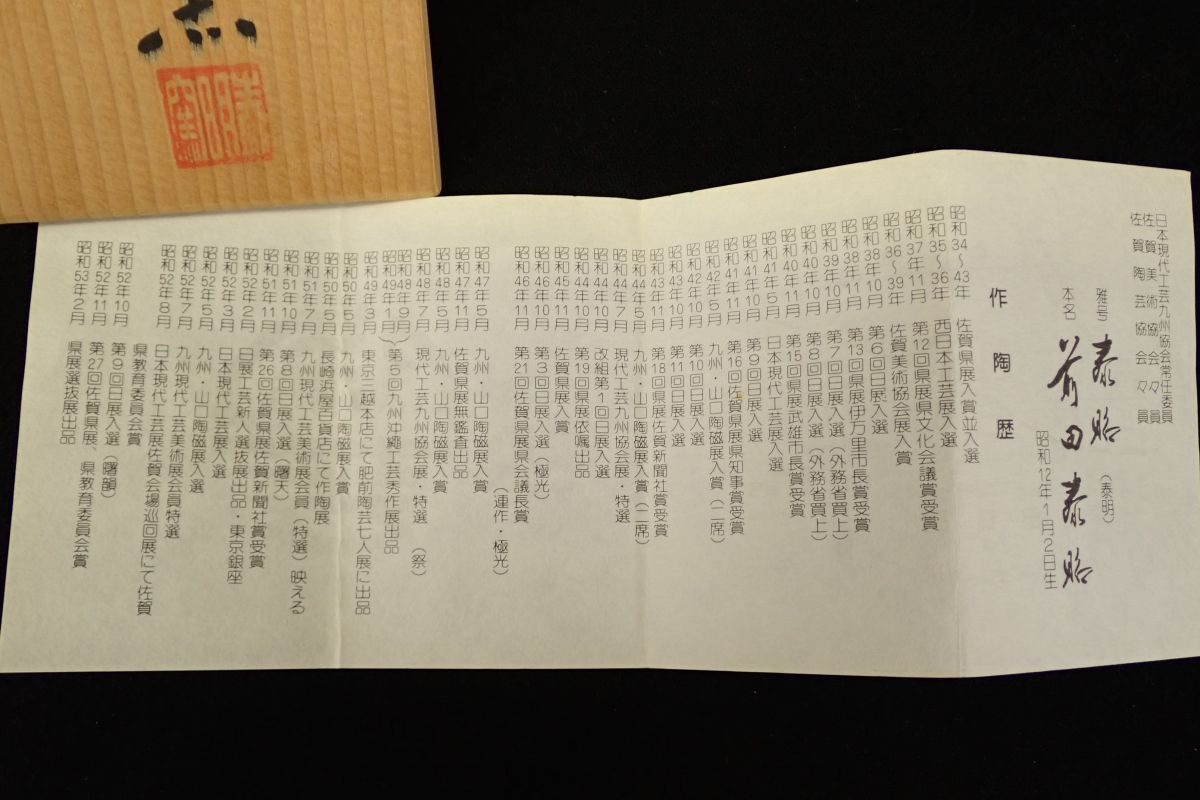 日本現代工芸九州協会常任委員
佐賀美術協会々員
佐賀陶芸協会々員
雅号 泰昭 (泰明)
本名 前田泰昭
昭和12年1月2日生
作陶歴
昭和34〜43年 佐賀県展入賞並入選
昭和35〜36年 西日本工芸展入選
昭和37年11月 第12回県展県文化会議賞受賞
昭和36〜39年 佐賀美術協会展入賞
昭和38年10月 第6回日展入選
昭和38年11月 第13回県展伊万里市長賞受賞
昭和39年10月 第7回日展入選(外務省買上)
昭和40年10月 第8回日展入選(外務省買上)
昭和40年11月 第15回県展武雄市長賞受賞
昭和41年5月 日本現代工芸展入選
昭和41年10月 第9回日展入選
昭和41年11月 第16回佐賀県展県知事賞受賞
昭和42年5月 九州・山口陶磁展入賞(二席)
昭和42年10月 第10回日展入選
昭和43年10月 第11回日展入選
昭和43年11月 第18回県展佐賀新聞社賞受賞
昭和44年5月 九州・山口陶磁展入賞(二席)
昭和44年7月 現代工芸九州協会展・特選
昭和44年10月 改組第1回日展入選
昭和44年11月 第19回県展依嘱出品
昭和45年11月 佐賀県展入賞
昭和46年10月 第3回日展入選(極光)
昭和46年11月 第21回佐賀県展県会議長賞
(連作・極光)
昭和47年5月 九州・山口陶磁展入賞
昭和47年11月 佐賀県展無鑑査出品
昭和48年5月 九州・山口陶磁展入選
昭和48年7月 現代工芸九州協会展・特選 (祭)
昭和48年9月
昭和49年1月 第5回九州沖縄工芸秀作展出品
昭和49年3月 東京三越本店にて肥前陶芸七人展に出品
昭和50年5月 九州・山口陶磁展入賞
昭和51年5月 長崎浜屋百貨店にて作陶展
昭和51年7月 九州現代工芸美術展会員(特選)映える
昭和51年10月 第8回日展入選(曙天)
昭和51年11月 第26回佐賀県展佐賀新聞社賞受賞
昭和52年2月 日展工芸新人選抜展出品・東京銀座
昭和52年3月 日本現代工芸展入選
昭和52年5月 九州・山口陶磁展入選
昭和52年7月 九州現代工芸美術展会員特選
昭和52年8月 日本現代工芸展佐賀会場巡回展にて佐賀
県教育委員会賞
昭和52年10月 第9回日展入選(曙韻)
昭和52年11月 第27回佐賀県展、県教育委員会賞
昭和53年2月 県展選抜展出品